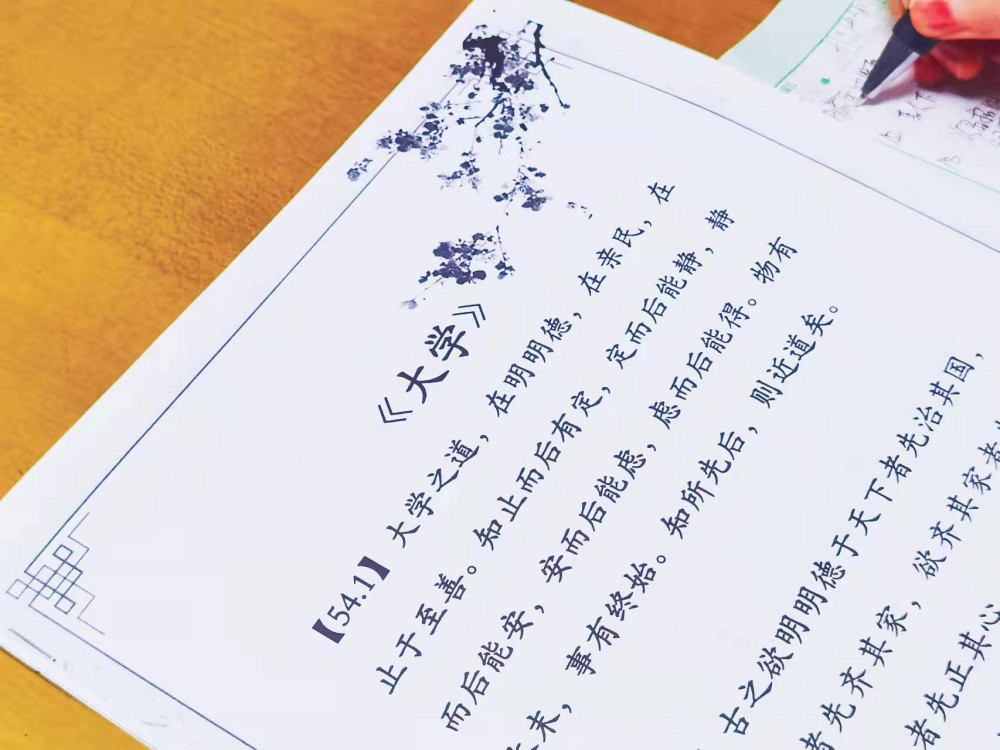 《大学》
【54.1】大学之道，在明明德，在亲民，在
止于至善。知止而后有定，定而后能静，静
而后能安，安而后能虑，虑而后能得。物有
本末，事有终始。知所先后，则近道矣。
古之欲明明德于天下者先治其国，
者先齐其家，欲齐其家者
者先正其心